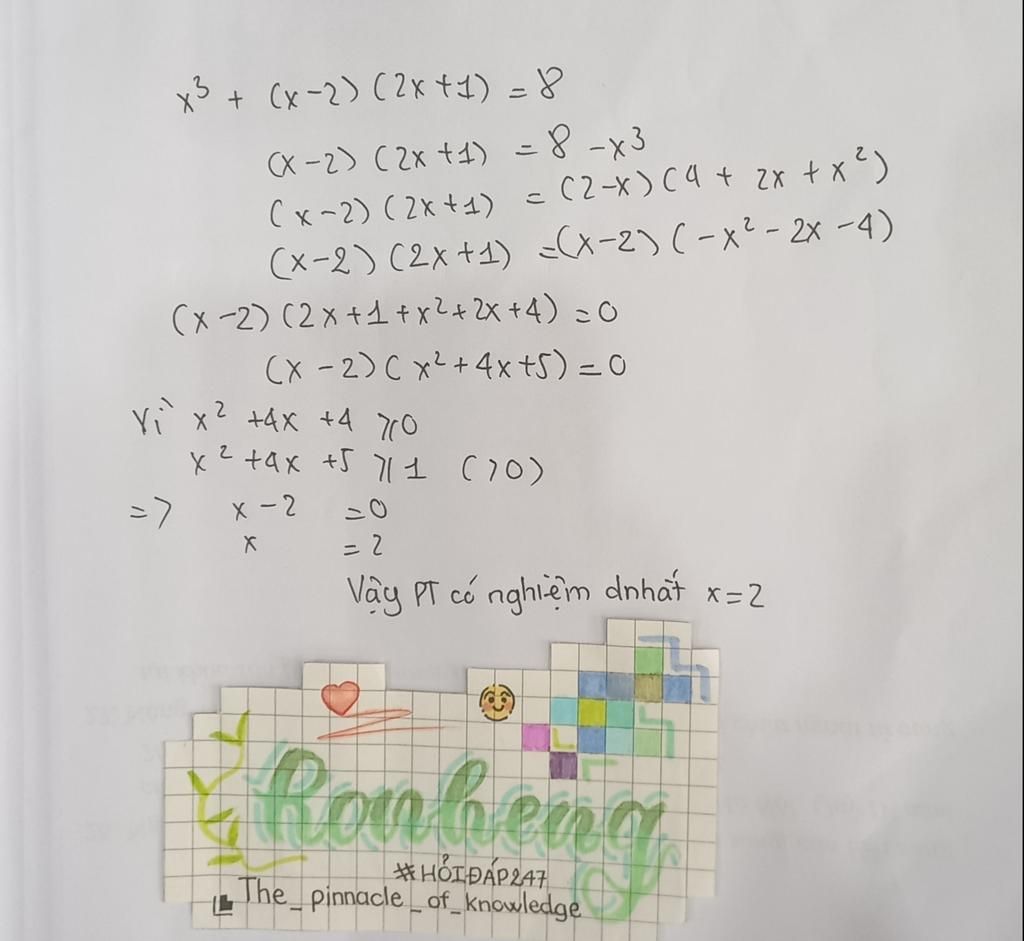 x³ + (x-2)(2x+1) = 8
(x-2)(2x+1) = 8 - x³
(x-2)(2x+1) = (2-x)(4 + 2x + x²)
(x-2)(2x+1) = (x-2)(-x² - 2x - 4)
(x-2)(2x+1+x²+2x+4) = 0
(x-2)(x²+4x+5) = 0
Vì x² +4x +4 ⩾0
x² +4x +5 ⩾1 (>0)
=> x-2 =0
x =2
Vậy PT có nghiệm dnhất x=2
Ronheng
#HỎIĐÁP247
The_pinnacle_of_knowledge